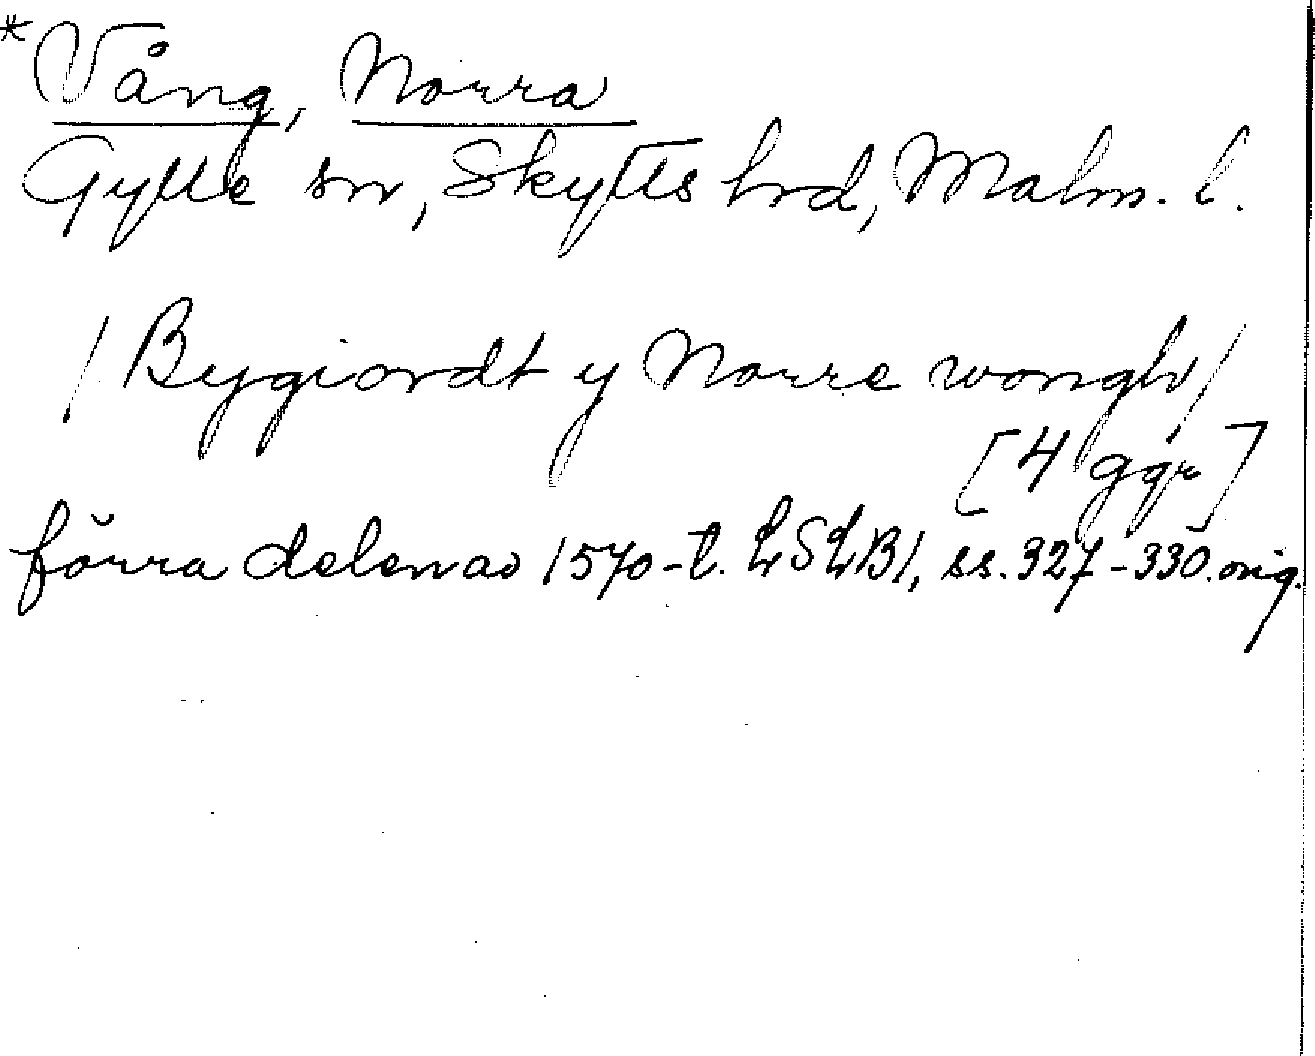 *Vång, Norra
Gylle sn, Skytts hrd, Malm. l.
/Bygiordt y Norre wongh/
[4 ggr]
förra delen av 1570-t. LSLB1, ss. 327-330. orig.